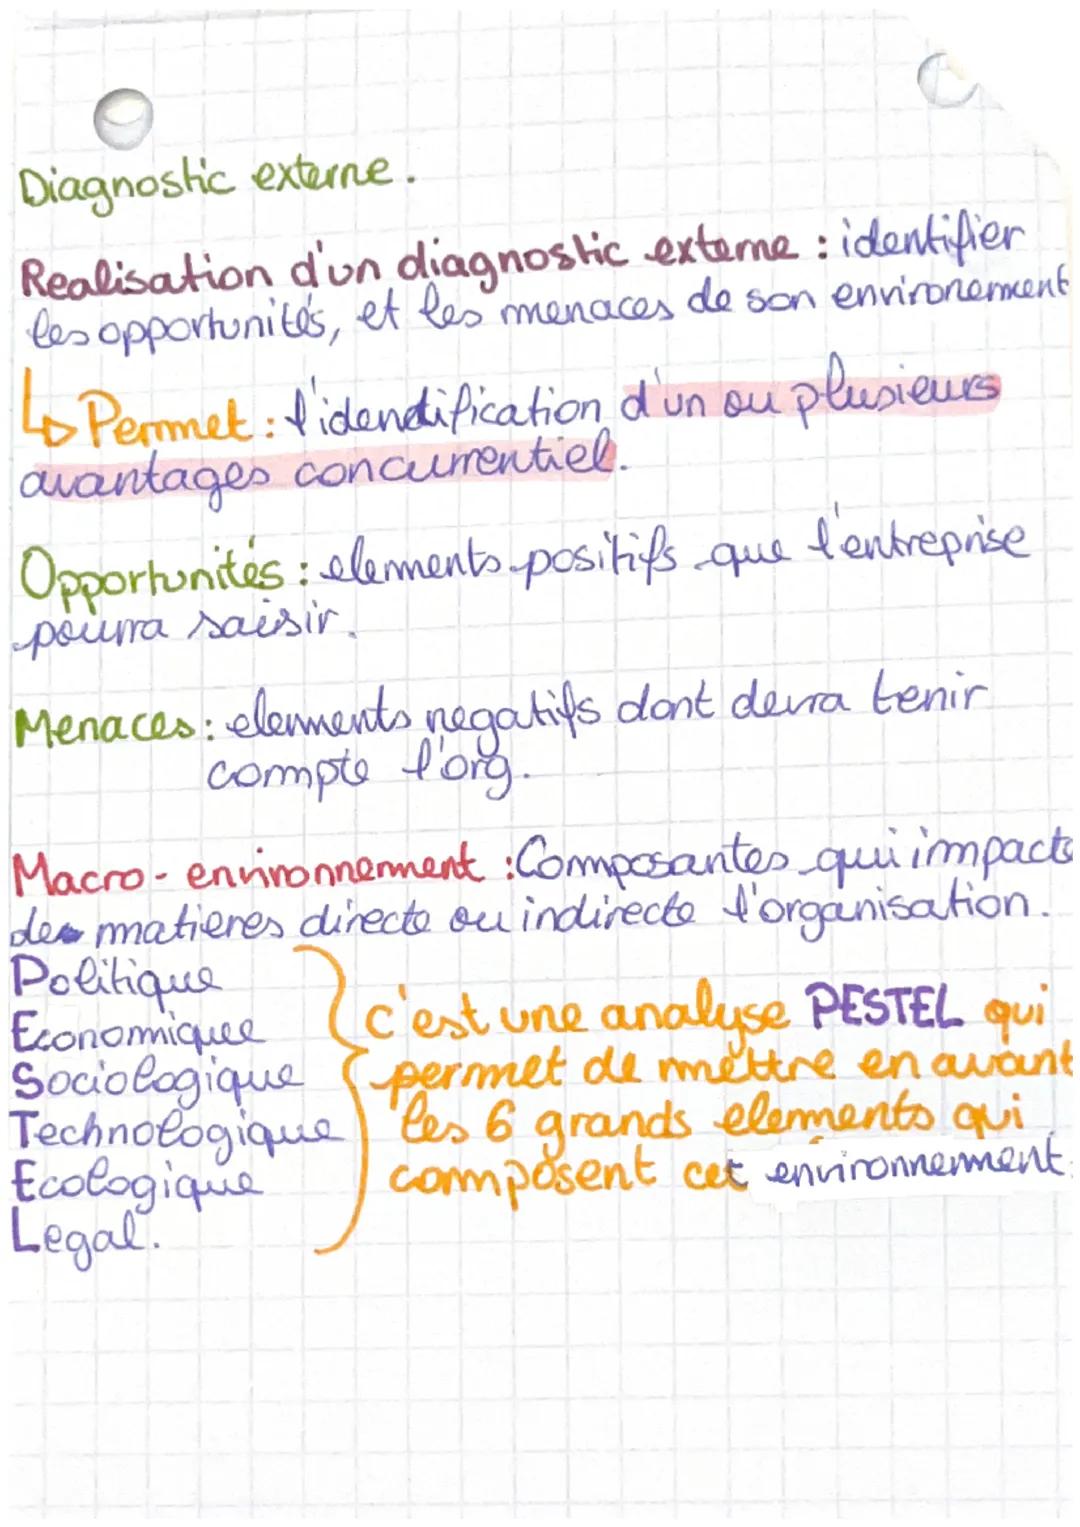 Diagnostic externe.
Realisation d'un diagnostic externe : identifier
les opportunités, et les menaces de son environement
↳ Permet : l'idendification d'un ou plusieurs
avantages concurrentiel.
Opportunités : elements positifs que l'entreprise
pourra saisir.
Menaces : elements negatifs dont devra tenir
compte l'org.
Macro-environnement : Composantes qui impacte
des matieres directe ou indirecte l'organisation.
Politique
Economique
Sociologique
Technologique
Ecologique
Legal.
c'est une analyse PESTEL qui
permet de mettre en avant
les 6 grands elements qui
composent cet environnement.